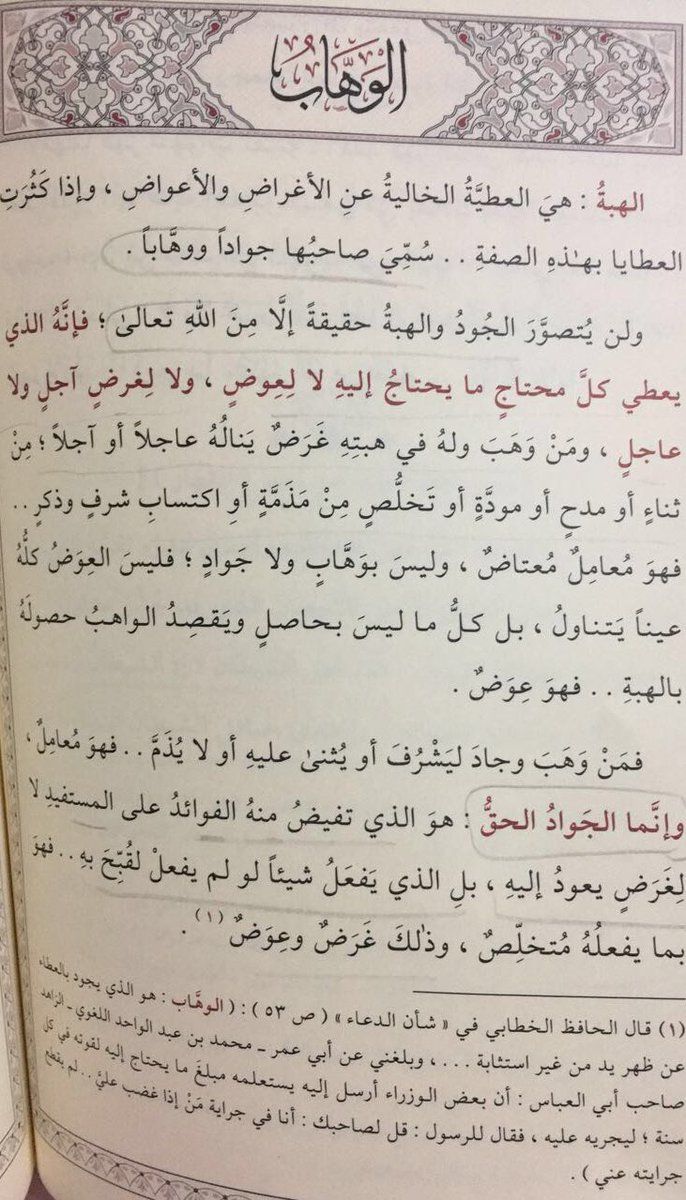 الوَهَّابُ
الهبةُ : هيَ العطيَّةُ الخاليةُ عنِ الأغراضِ والأعواضِ ، وإذا كَثُرَتِ
العطايا بهـٰذهِ الصفةِ . . سُمِّيَ صاحبُها جواداً ووهَّاباً .
ولن يُتصوَّرَ الجُودُ والهبةُ حقيقةً إلَّا مِنَ اللهِ تعالىٰ ؛ فإنَّهُ الذي
يعطي كلَّ محتاجٍ ما يحتاجُ إليهِ لا لِعِوضٍ ، ولا لِغرضٍ آجلٍ ولا
عاجلٍ ، ومَنْ وَهَبَ ولهُ في هبتِهِ غَرَضٌ يَنالُهُ عاجلاً أو آجلاً ؛ مِنْ
ثناءٍ أو مدحٍ أو مودَّةٍ أو تَخلُّصٍ مِنْ مَذَمَّةٍ أوِ اكتسابِ شرفٍ وذكرٍ . .
فهوَ مُعامِلٌ مُعتاضٌ ، وليسَ بوَهَّابٍ ولا جَوادٍ ؛ فليسَ العِوَضُ كلُّهُ
عيناً يَتناولُ ، بل كلُّ ما ليسَ بحاصلٍ ويَقصِدُ الواهبُ حصولَهُ
بالهبةِ . . فهوَ عِوَضٌ .
فمَنْ وَهَبَ وجادَ ليَشْرُفَ أو يُثنىٰ عليهِ أو لا يُذَمَّ . . فهوَ مُعامِلٌ ،
وإنَّما الجَوادُ الحقُّ : هوَ الذي تفيضُ منهُ الفوائدُ على المستفيدِ لا
لِغَرَضٍ يعودُ إليهِ ، بلِ الذي يَفعَلُ شيئاً لو لم يفعلْ لقُبِّحَ بهِ . . فهوَ
بما يفعلُهُ مُتخلِّصٌ ، وذٰلكَ غَرَضٌ وعِوَضٌ (١) .
(١) قال الحافظ الخطابي في « شأن الدعاء » ( ص ٥٣ ) : ( الوهَّاب : هو الذي يجود بالعطاء
عن ظهر يد من غير استثابة . . . ، وبلغني عن أبي عمر ـ محمد بن عبد الواحد اللغوي ـ الزاهد
صاحب أبي العباس : أن بعض الوزراء أرسل إليه يستعلمه مبلغَ ما يحتاج إليه لقوته في كل
سنة ؛ ليجريه عليه ، فقال للرسول : قل لصاحبك : أنا في جراية مَنْ إذا غضب عليَّ . . لم يقطع
جرايته عني ) .